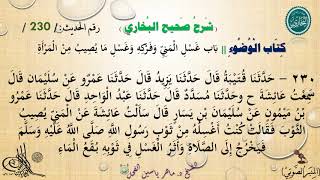 شرح صحيح البخاري
رقم الحديث: / 230 /
كتاب الوضوء || باب غسل المني وفركه وغسل ما يصيب من المرأة
٢٣٠ - حَدَّثَنَا قُتَيْبَةُ قَالَ حَدَّثَنَا يَزِيدُ قَالَ حَدَّثَنَا عَمْرٌو عَنْ سُلَيْمَانَ قَالَ
سَمِعْتُ عَائِشَةَ ح وحَدَّثَنَا مُسَدَّدٌ قَالَ حَدَّثَنَا عَبْدُ الْوَاحِدِ قَالَ حَدَّثَنَا عَمْرُو
بْنُ مَيْمُونٍ عَنْ سُلَيْمَانَ بْنِ يَسَارٍ قَالَ سَأَلْتُ عَائِشَةَ عَنْ الْمَنِيِّ يُصِيبُ
الثَّوْبَ فَقَالَتْ كُنْتُ أَغْسِلُهُ مِنْ ثَوْبِ رَسُولِ اللَّهِ صَلَّى اللَّهُ عَلَيْهِ وَسَلَّمَ
فَيَخْرُجُ إِلَى الصَّلَاةِ وَأَثَرُ الْغَسْلِ فِي ثَوْبِهِ بُقَعُ الْمَاءِ
د. ماهر ياسين الفحل